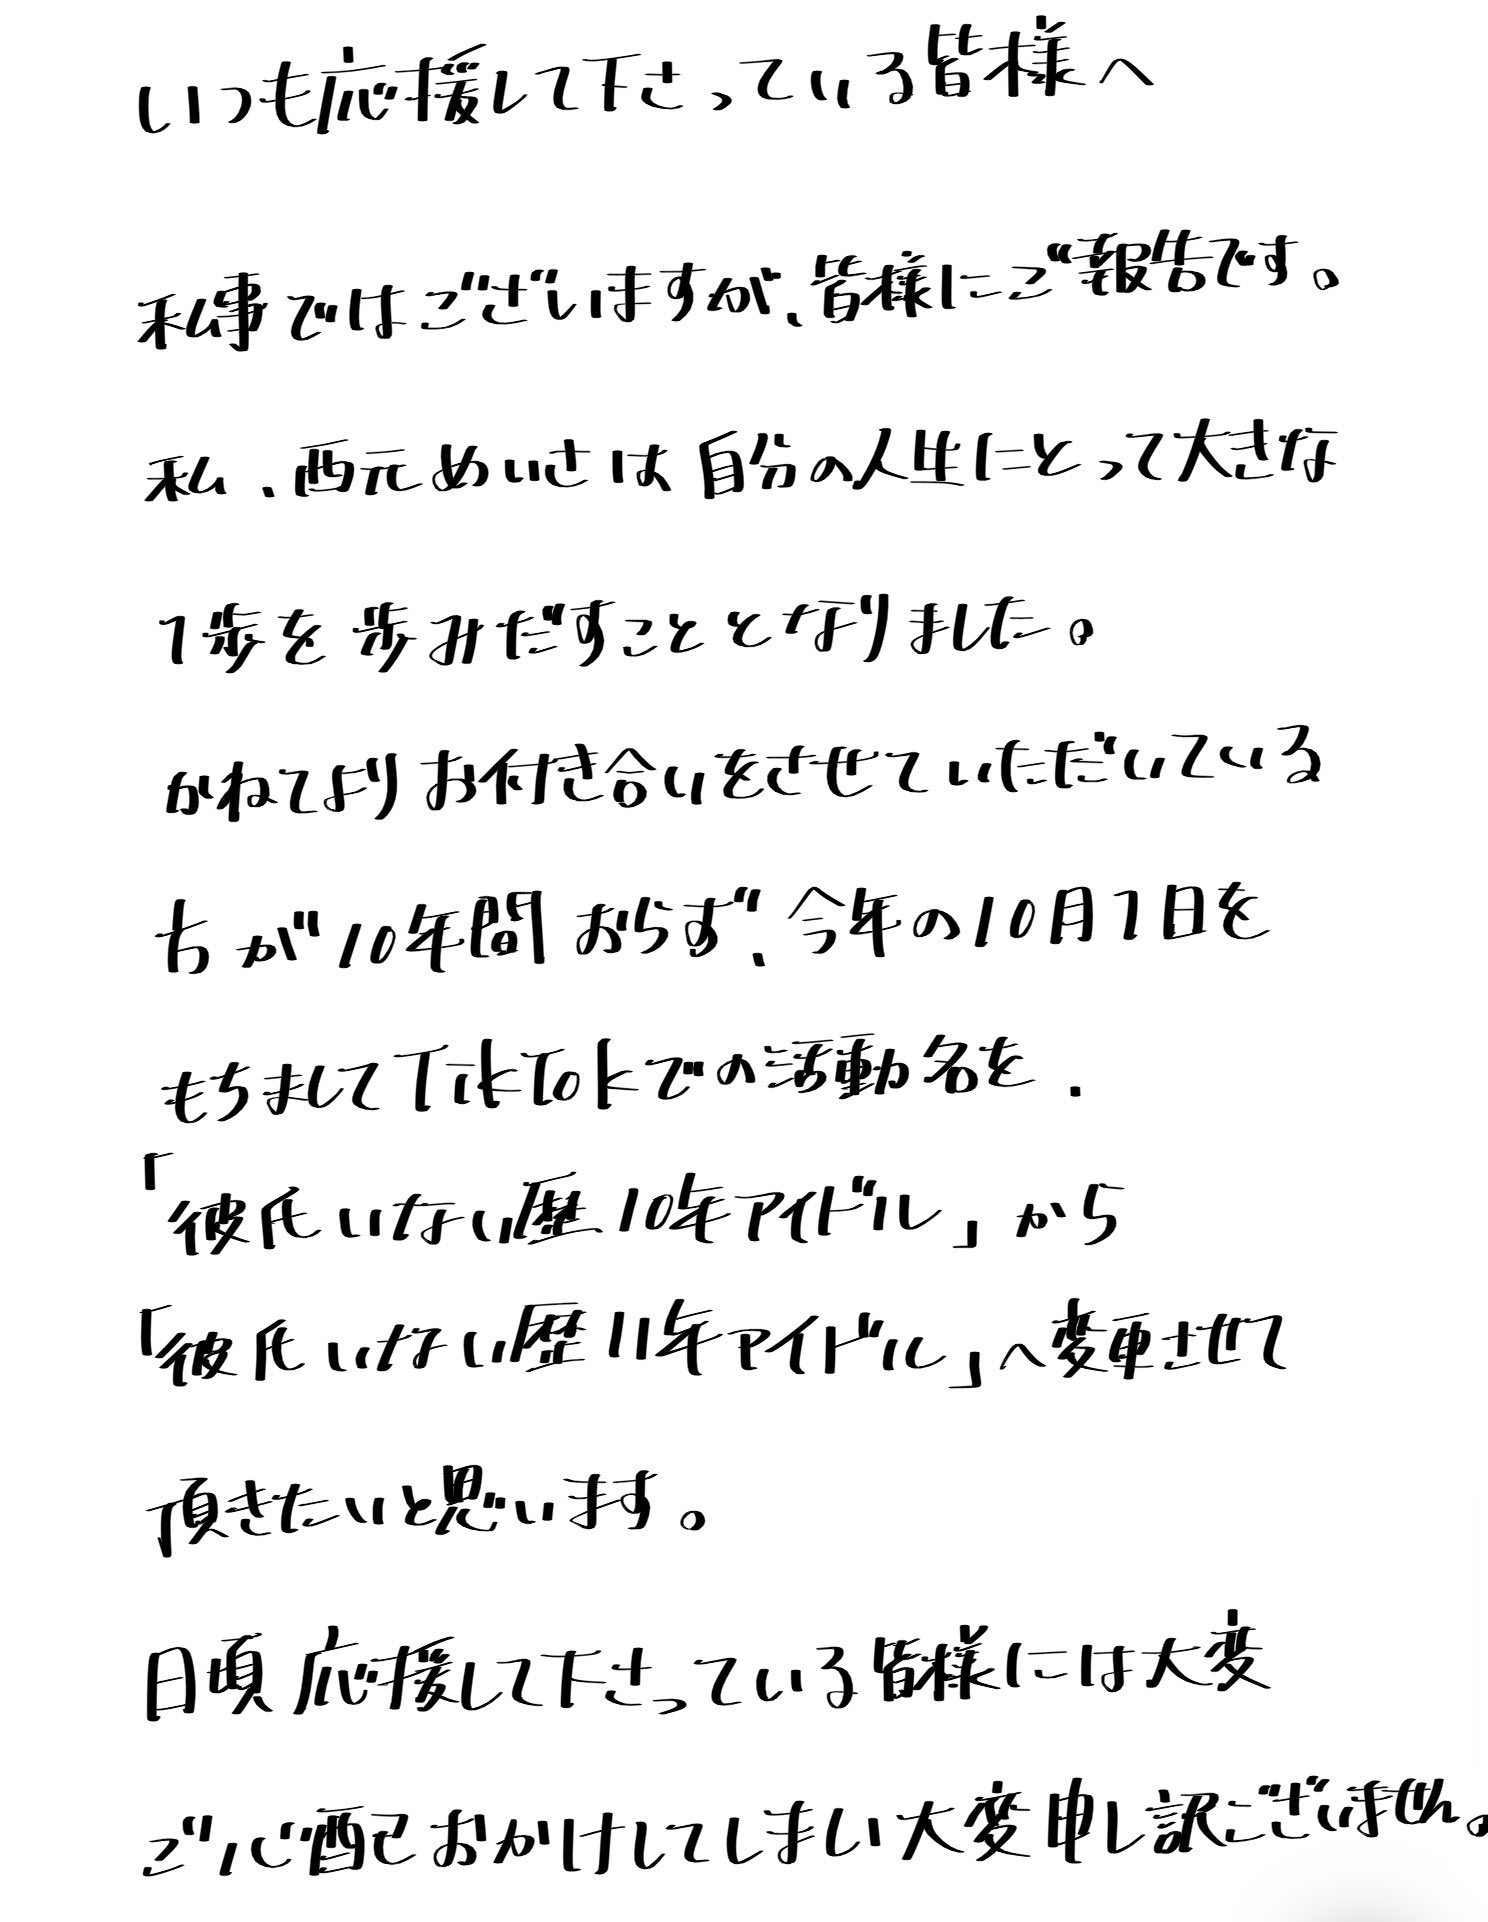 いつも応援して下さっている皆様へ
私事ではございますが、皆様にご報告です。
私、西元めいさは自分の人生にとって大きな
1歩を歩みだすこととなりました。
かねてよりお付き合いをさせていただいている
方が10年間おらず、今年の10月1日を
もちましてTikTokでの活動名を、
「彼氏いない歴10年アイドル」から
「彼氏いない歴11年アイドル」へ変更させて
頂きたいと思います。
日頃応援して下さっている皆様には大変
ご心配おかけしてしまい大変申し訳ございません。